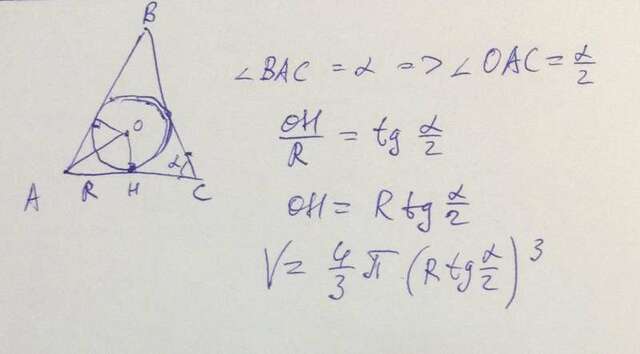 B
O
α
A R H C
∠BAC = α => ∠OAC = α/2
OH/R = tg α/2
OH = R tg α/2
V = 4/3 π (R tg α/2)³